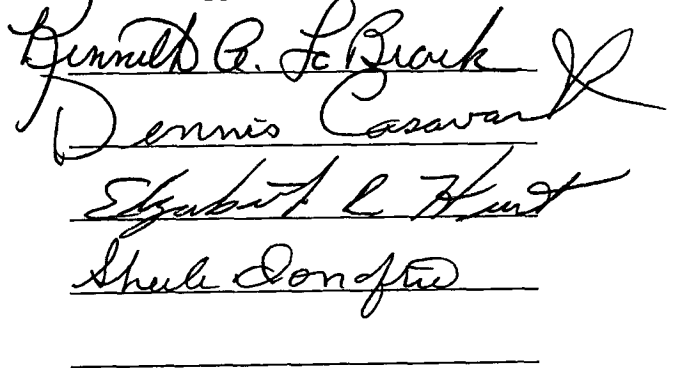 Kenneth A. LaBrack
Dennis Casavant
Elizabeth R Hunt
Sheila Donofrio